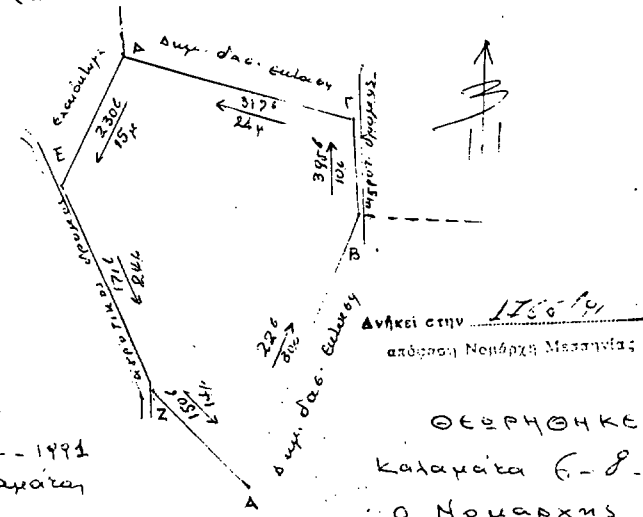 Δ
Δημ. δασ. έκταση
Γ
317ᵍ
24μ
Ελαιόκτημα
230ᵍ
15μ
E
395ᵍ
10μ
αγροτ. δρόμος
B
αγροτικός δρόμος
171ᵍ
24μ
22ᵍ
30μ
Δημ. δασ. έκταση
Z
150ᵍ
A
Ανήκει στην
απόφαση Νομάρχη Μεσσηνίας
ΘΕΩΡΗΘΗΚΕ
Καλαμάτα 6-8-
Ο Νομάρχης
-- 1991